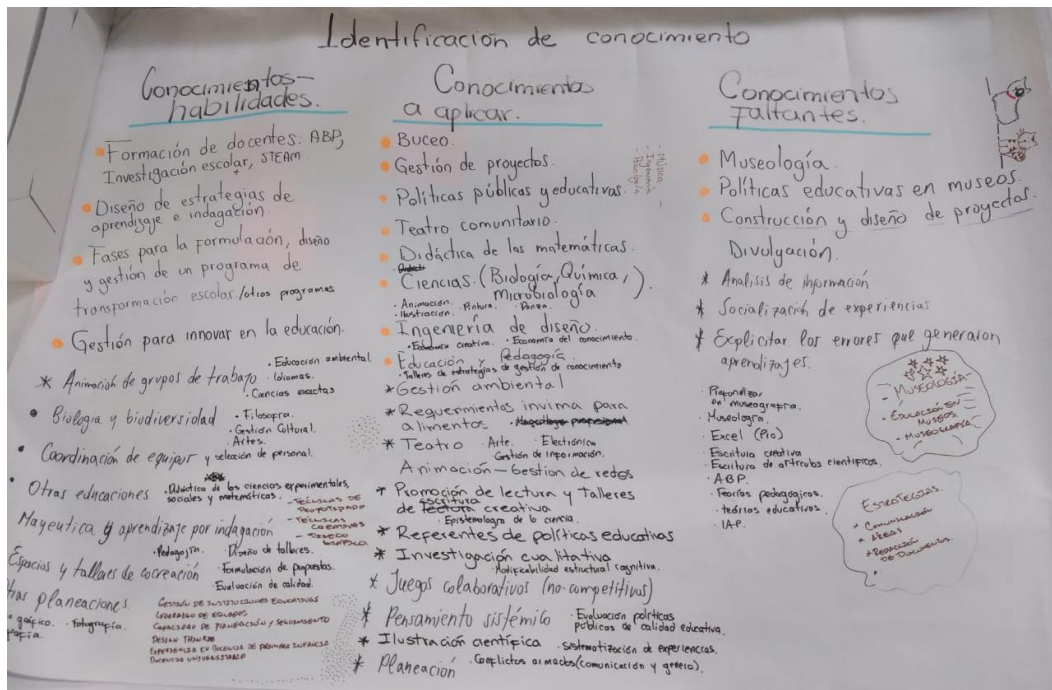 Identificación de conocimiento
Conocimientos-
habilidades.
• Formación de docentes: ABP,
Investigación escolar, STEAM.
• Diseño de estrategias de
aprendizaje e indagación.
• Fases para la formulación, diseño
y gestión de un programa de
transformación escolar./otros programas
• Gestión para innovar en la educación.
· Educación ambiental
* Animación de grupos de trabajo · Idiomas.
· Ciencias exactas
• Biología y biodiversidad · Filosofía.
· Gestión Cultural.
· Artes.
• Coordinación de equipos y selección de personal.
• Otras educaciones · Didáctica de las ciencias experimentales,
sociales y matemáticas.
- Técnicas de
prototipado
- Técnicas
creativas
- Diseño
gráfico.
Mayeutica y aprendizaje por indagación
· Pedagogía. · Diseño de talleres.
Espacios y talleres de cocreación
· Formulación de propuestas.
· Evaluación de calidad.
planeaciones.
gráfico. · Fotografía.
Gestión de instituciones educativas
Liderazgo de equipos
Capacidad de planeación y seguimiento
Design Thinking
Experiencia en docencia de primera infancia
Docencia universitaria
Conocimientos
a aplicar.
• Buceo.
• Gestión de proyectos.
• Políticas públicas y educativas.
- Música
- Ingeniería
- Psicología
• Teatro comunitario.
• Didáctica de las matemáticas.
• Ciencias. (Biología, Química,
Microbiología).
· Animación. · Pintura. · Danza.
· Ilustración.
• Ingeniería de diseño.
· Economía creativa. · Economía del conocimiento.
• Educación y Pedagogía.
· Talleres de estrategias de gestión de conocimiento
* Gestión ambiental
* Requerimientos invima para
alimentos
* Teatro · Arte. · Electrónica
· Gestión de información.
Animación - Gestion de redes
* Promoción de lectura y talleres
de escritura creativa
· Epistemología de la ciencia.
* Referentes de políticas educativas
* Investigación cualitativa
· Modificabilidad estructural cognitiva.
* Juegos colaborativos (no-competitivos)
* Pensamiento sistémico · Evaluación políticas
públicas de calidad educativa.
* Ilustración científica · sistematización de experiencias.
* Planeación · Conflictos armados (comunicación y genero).
Conocimientos
Faltantes.
• Museología.
• Políticas educativas en museos.
• Construcción y diseño de proyectos.
Divulgación.
* Analisis de información
* Socialización de experiencias
* Explicitar los errores que generaron
aprendizajes.
· Profundizar
en museografía.
· Museología.
· Excel (Pro)
· Escritura creativa
· Escritura de artículos científicos.
· ABP.
· Teorías pedagógicas.
· teorías educativas.
· IAP.
- Museología -
- Educación en
museos
- Museografía
Estrategias.
* Comunicación
* Redacción
de documentos.